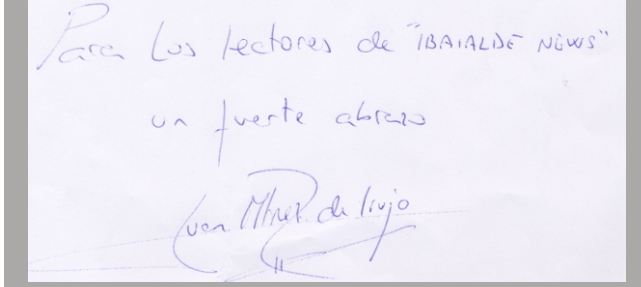 Para los lectores de "IBAIALDE NEWS"
un fuerte abrazo
Juan Mtnez de Irujo